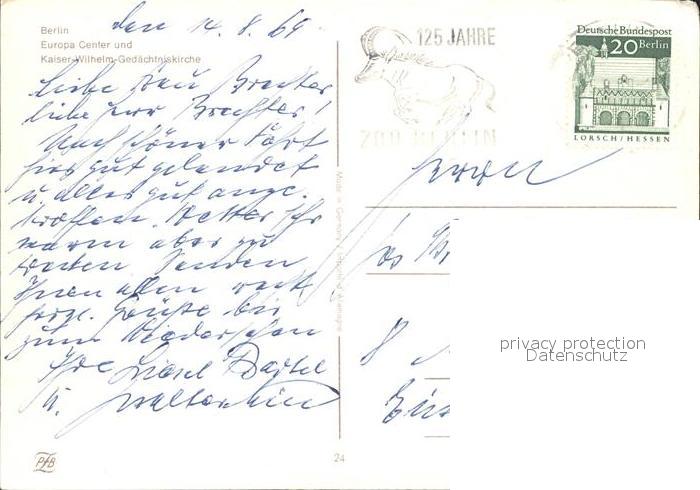 Berlin
Europa Center und
Kaiser-Wilhelm-Gedächtniskirche
den 14. 8. 69
Liebe Frau Brechter
liebe Herr Brechter!
Nach schöner Fahrt
hier gut gelandet
u. alles gut ange-
troffen. Wetter
warm aber zu
Senden
Ihnen allen recht
herzl. Grüße bis
zum Wiedersehen
Ihre
u.
125 JAHRE
ZOO BERLIN
Deutsche Bundespost
20 Berlin
LORSCH/HESSEN
Herrn
Jos
8
Made in Germany
PFB
24
privacy protection
Datenschutz